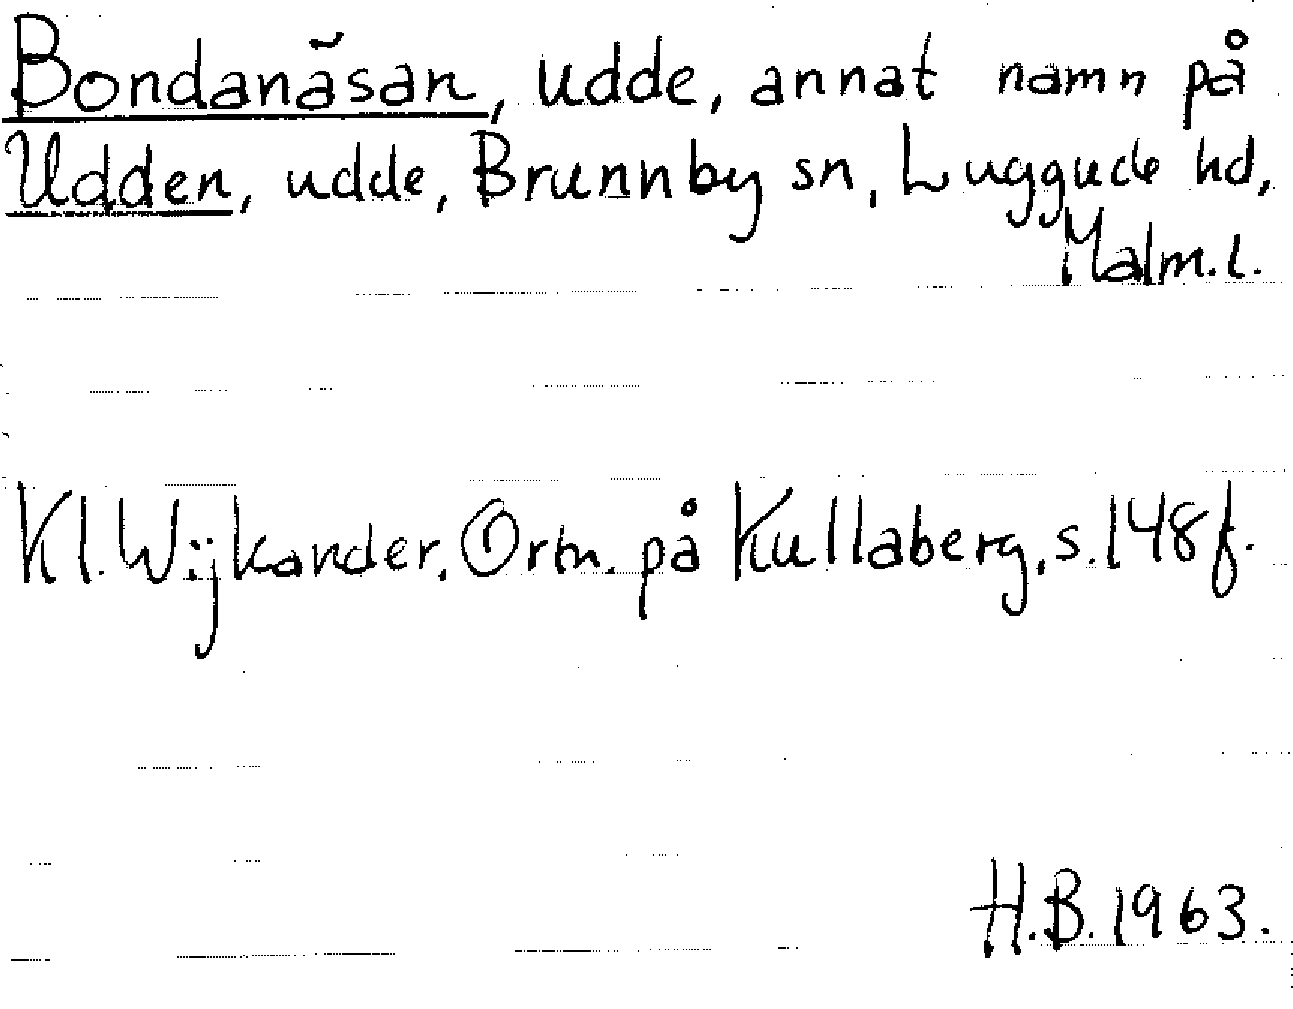 Bondanäsan, udde, annat namn på
Udden, udde, Brunnby sn, Luggude hd,
Malm.l.
Kl. Wijkander, Ortn. på Kullaberg, s. 148 f.
H.B. 1963.